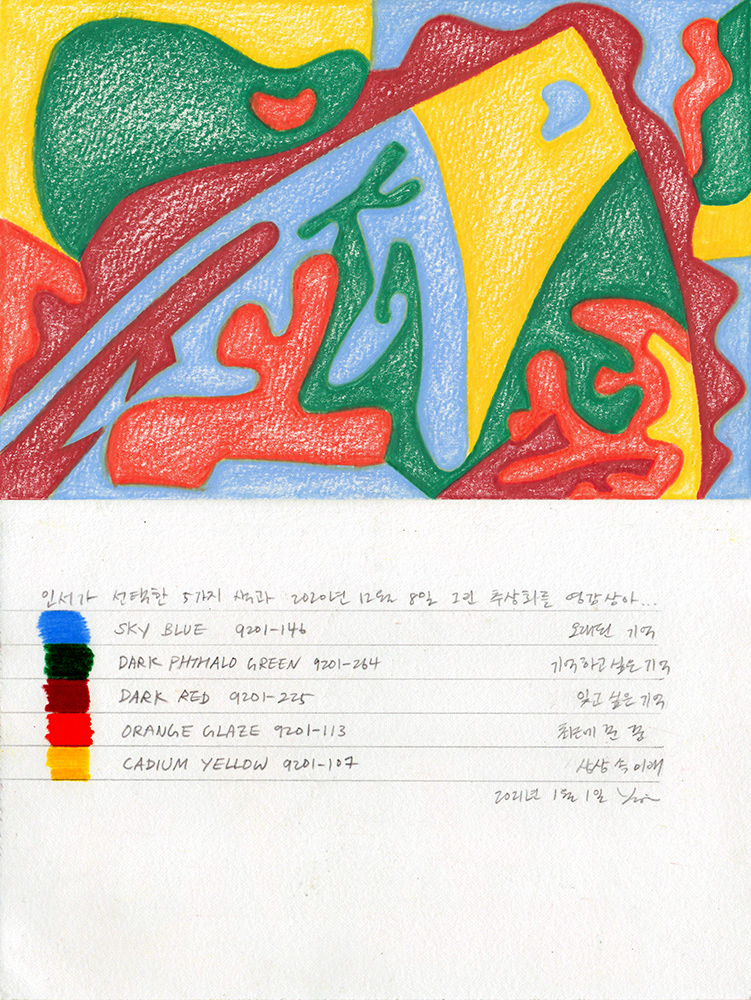 인서가 선택한 5가지 색과 2020년 12월 8일 그린 추상화를 영감삼아...
SKY BLUE 9201-146 오래된 기억
DARK PHTHALO GREEN 9201-264 기억하고 싶은 기억
DARK RED 9201-225 잊고 싶은 기억
ORANGE GLAZE 9201-113 최근에 꾼 꿈
CADIUM YELLOW 9201-107 상상 속 미래
2021년 1월 1일